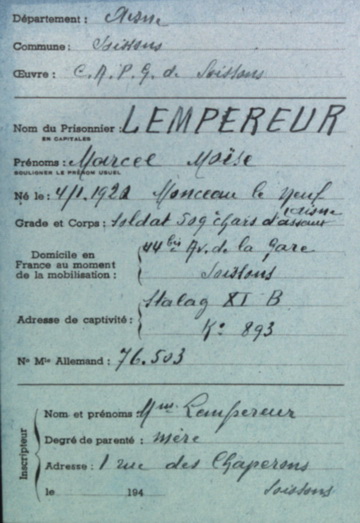 Département : Aisne
Commune : Soissons
Œuvre : C.A.P.G. de Soissons
Nom du Prisonnier : LEMPEREUR
EN CAPITALES
Prénoms : Marcel Moïse
SOULIGNER LE PRÉNOM USUEL
Né le : 4/1.1921 Monceau le Neuf
Aisne
Grade et Corps : Soldat 509e chars d'assaut
Domicile en
France au moment
de la mobilisation :
44 bis Av. de la Gare
Soissons
Adresse de captivité :
Stalag XI B
Ko 893
No Mle Allemand : 76.503
Inscripteur
Nom et prénoms : Mme Lempereur
Degré de parenté : mère
Adresse : 1 rue des Chaperons
le 194 Soissons